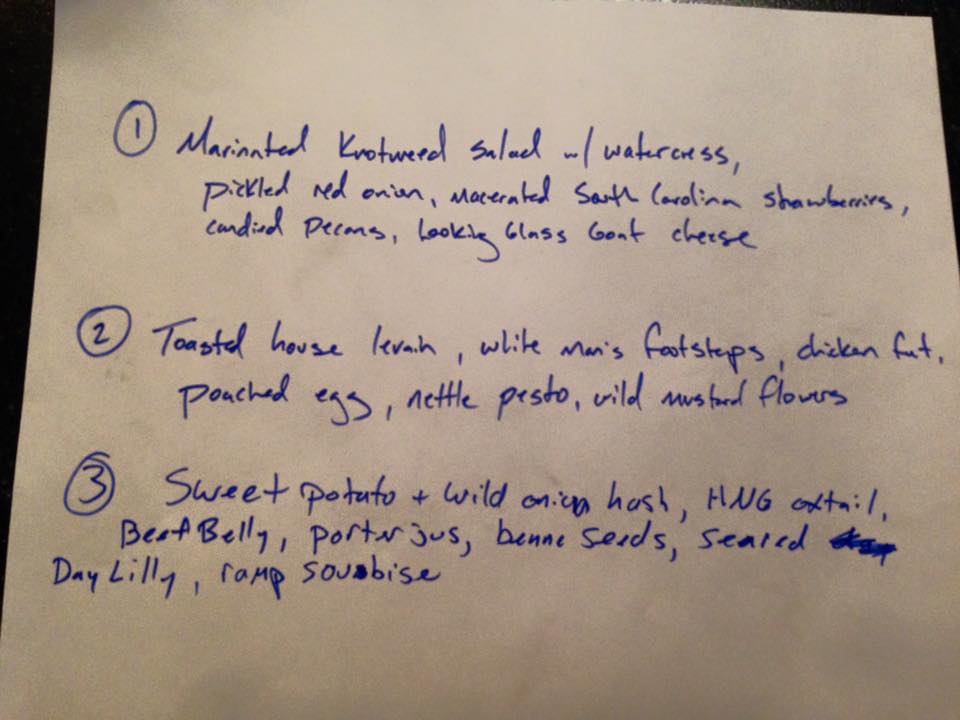 ① Marinated Knotweed Salad w/ watercress,
pickled red onion, macerated South Carolina strawberries,
candied Pecans, Looking Glass Goat cheese
② Toasted house levain, white man's footsteps, chicken fat,
poached egg, nettle pesto, wild mustard flowers
③ Sweet potato + wild onion hash, HNG oxtail,
Beef Belly, porter jus, benne seeds, seared
Day Lilly, ramp soubise